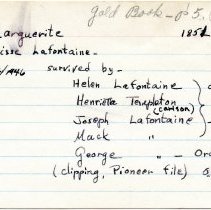 Gold Book - p 5.
arguerite 185
isse Lafontaine -
/1946 survived by -
Helen Lafontaine
Henrietta Templeton
(Carlson)
Joseph Lafontaine
Mack "
George " - Or
(clipping, Pioneer file)